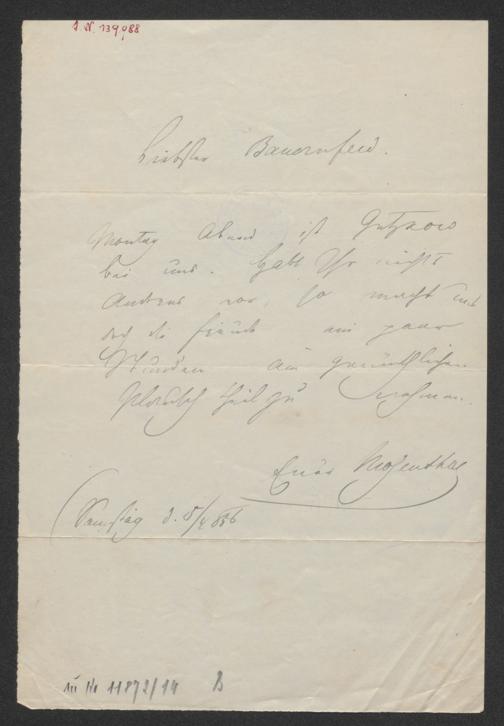 I. N. 139,988
Liebster Bauernfeld.
Montag Abend ist Gutzkow
bei uns. Habt Ihr nichts
Anderes vor, so macht uns
doch die Freude ein paar
Stunden am gemüthlichen
Plausch theil zu nehmen.
Euer Mosenthal
Samstag d. 5/4 856
11872/14 B